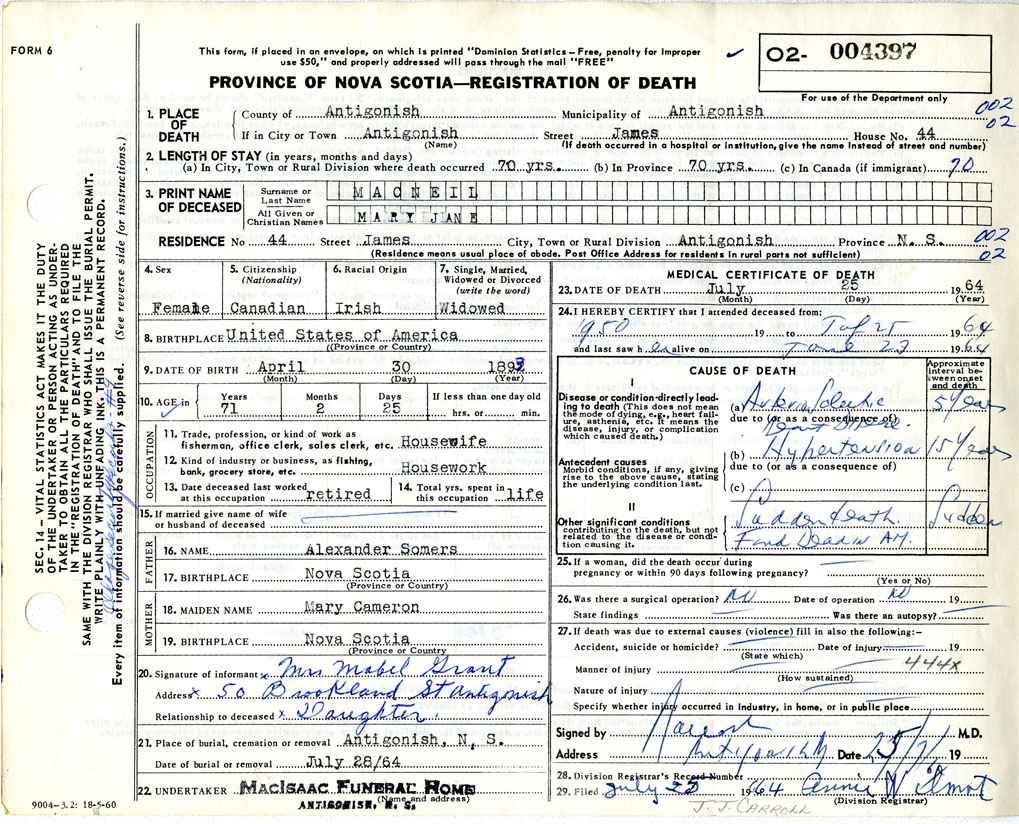 FORM 6
This form, if placed in an envelope, on which is printed "Dominion Statistics – Free, penalty for improper
use $50," and properly addressed will pass through the mail "FREE"
✓
02- 004397
For use of the Department only
PROVINCE OF NOVA SCOTIA—REGISTRATION OF DEATH
SEC. 14 – VITAL STATISTICS ACT MAKES IT THE DUTY
OF THE UNDERTAKER OR PERSON ACTING AS UNDER-
TAKER TO OBTAIN ALL THE PARTICULARS REQUIRED
IN THE "REGISTRATION OF DEATH" AND TO FILE THE
SAME WITH THE DIVISION REGISTRAR WHO SHALL ISSUE THE BURIAL PERMIT.
WRITE PLAINLY WITH UNFADING INK. THIS IS A PERMANENT RECORD.
Every item of information should be carefully supplied. (See reverse side for instructions.)
1. PLACE OF DEATH County of Antigonish Municipality of Antigonish 002
If in City or Town Antigonish Street James House No. 44 02
(Name) (If death occurred in a hospital or institution, give the name instead of street and number)
2. LENGTH OF STAY (in years, months and days)
(a) In City, Town or Rural Division where death occurred 70 yrs. (b) In Province 70 yrs. (c) In Canada (if immigrant) 70
3. PRINT NAME OF DECEASED Surname or Last Name MACNEIL
All Given or Christian Names MARY JANE
RESIDENCE No 44 Street James City, Town or Rural Division Antigonish Province N. S. 002
(Residence means usual place of abode. Post Office Address for residents in rural parts not sufficient) 02
4. Sex Female
5. Citizenship (Nationality) Canadian
6. Racial Origin Irish
7. Single, Married, Widowed or Divorced (write the word) Widowed
8. BIRTHPLACE United States of America
(Province or Country)
9. DATE OF BIRTH April 30 1893
(Month) (Day) (Year)
10. AGE in Years 71 Months 2 Days 25 If less than one day old hrs. or min.
OCCUPATION
11. Trade, profession, or kind of work as
fisherman, office clerk, sales clerk, etc. Housewife
12. Kind of industry or business, as fishing,
bank, grocery store, etc. Housework
13. Date deceased last worked at this occupation retired
14. Total yrs. spent in this occupation life
15. If married give name of wife
or husband of deceased
FATHER
16. NAME Alexander Somers
17. BIRTHPLACE Nova Scotia
(Province or Country)
MOTHER
18. MAIDEN NAME Mary Cameron
19. BIRTHPLACE Nova Scotia
(Province or Country
20. Signature of informant x Mrs Mabel Grant
Address x 50 Brookland St Antigonish
Relationship to deceased x Daughter.
21. Place of burial, cremation or removal Antigonish, N. S.
Date of burial or removal July 28/64
22. UNDERTAKER MacIsaac Funeral Home
(Name and address)
ANTIGONISH, N. S.
9004–3.2: 18-5-60
MEDICAL CERTIFICATE OF DEATH
23. DATE OF DEATH July 25 1964
(Month) (Day) (Year)
24. I HEREBY CERTIFY that I attended deceased from:
1950 19 to 25 1964
and last saw her alive on June 23 1964
CAUSE OF DEATH
Approximate interval between onset and death
I
Disease or condition directly leading to death (This does not mean the mode of dying, e.g., heart failure, asthenia, etc. It means the disease, injury, or complication which caused death.)
(a) 5 Years
due to (or as a consequence of)
Antecedent causes
Morbid conditions, if any, giving rise to the above cause, stating the underlying condition last.
(b) Hypertension 15 Years
due to (or as a consequence of)
(c)
II
Other significant conditions
contributing to the death, but not related to the disease or condition causing it.
Sudden death. Sudden
Found Dead in AM.
25. If a woman, did the death occur during
pregnancy or within 90 days following pregnancy?
(Yes or No)
26. Was there a surgical operation? No Date of operation No 19
State findings Was there an autopsy?
27. If death was due to external causes (violence) fill in also the following:–
Accident, suicide or homicide? Date of Injury 19
(State which) 444x
Manner of injury
(How sustained)
Nature of injury
Specify whether injury occurred in industry, in home, or in public place
Signed by M.D.
Address Antigonish Date 25/7/ 19
28. Division Registrar's Record Number
29. Filed July 25 1964 Annie W Wilmot
(Division Registrar)
J. J. CARROLL